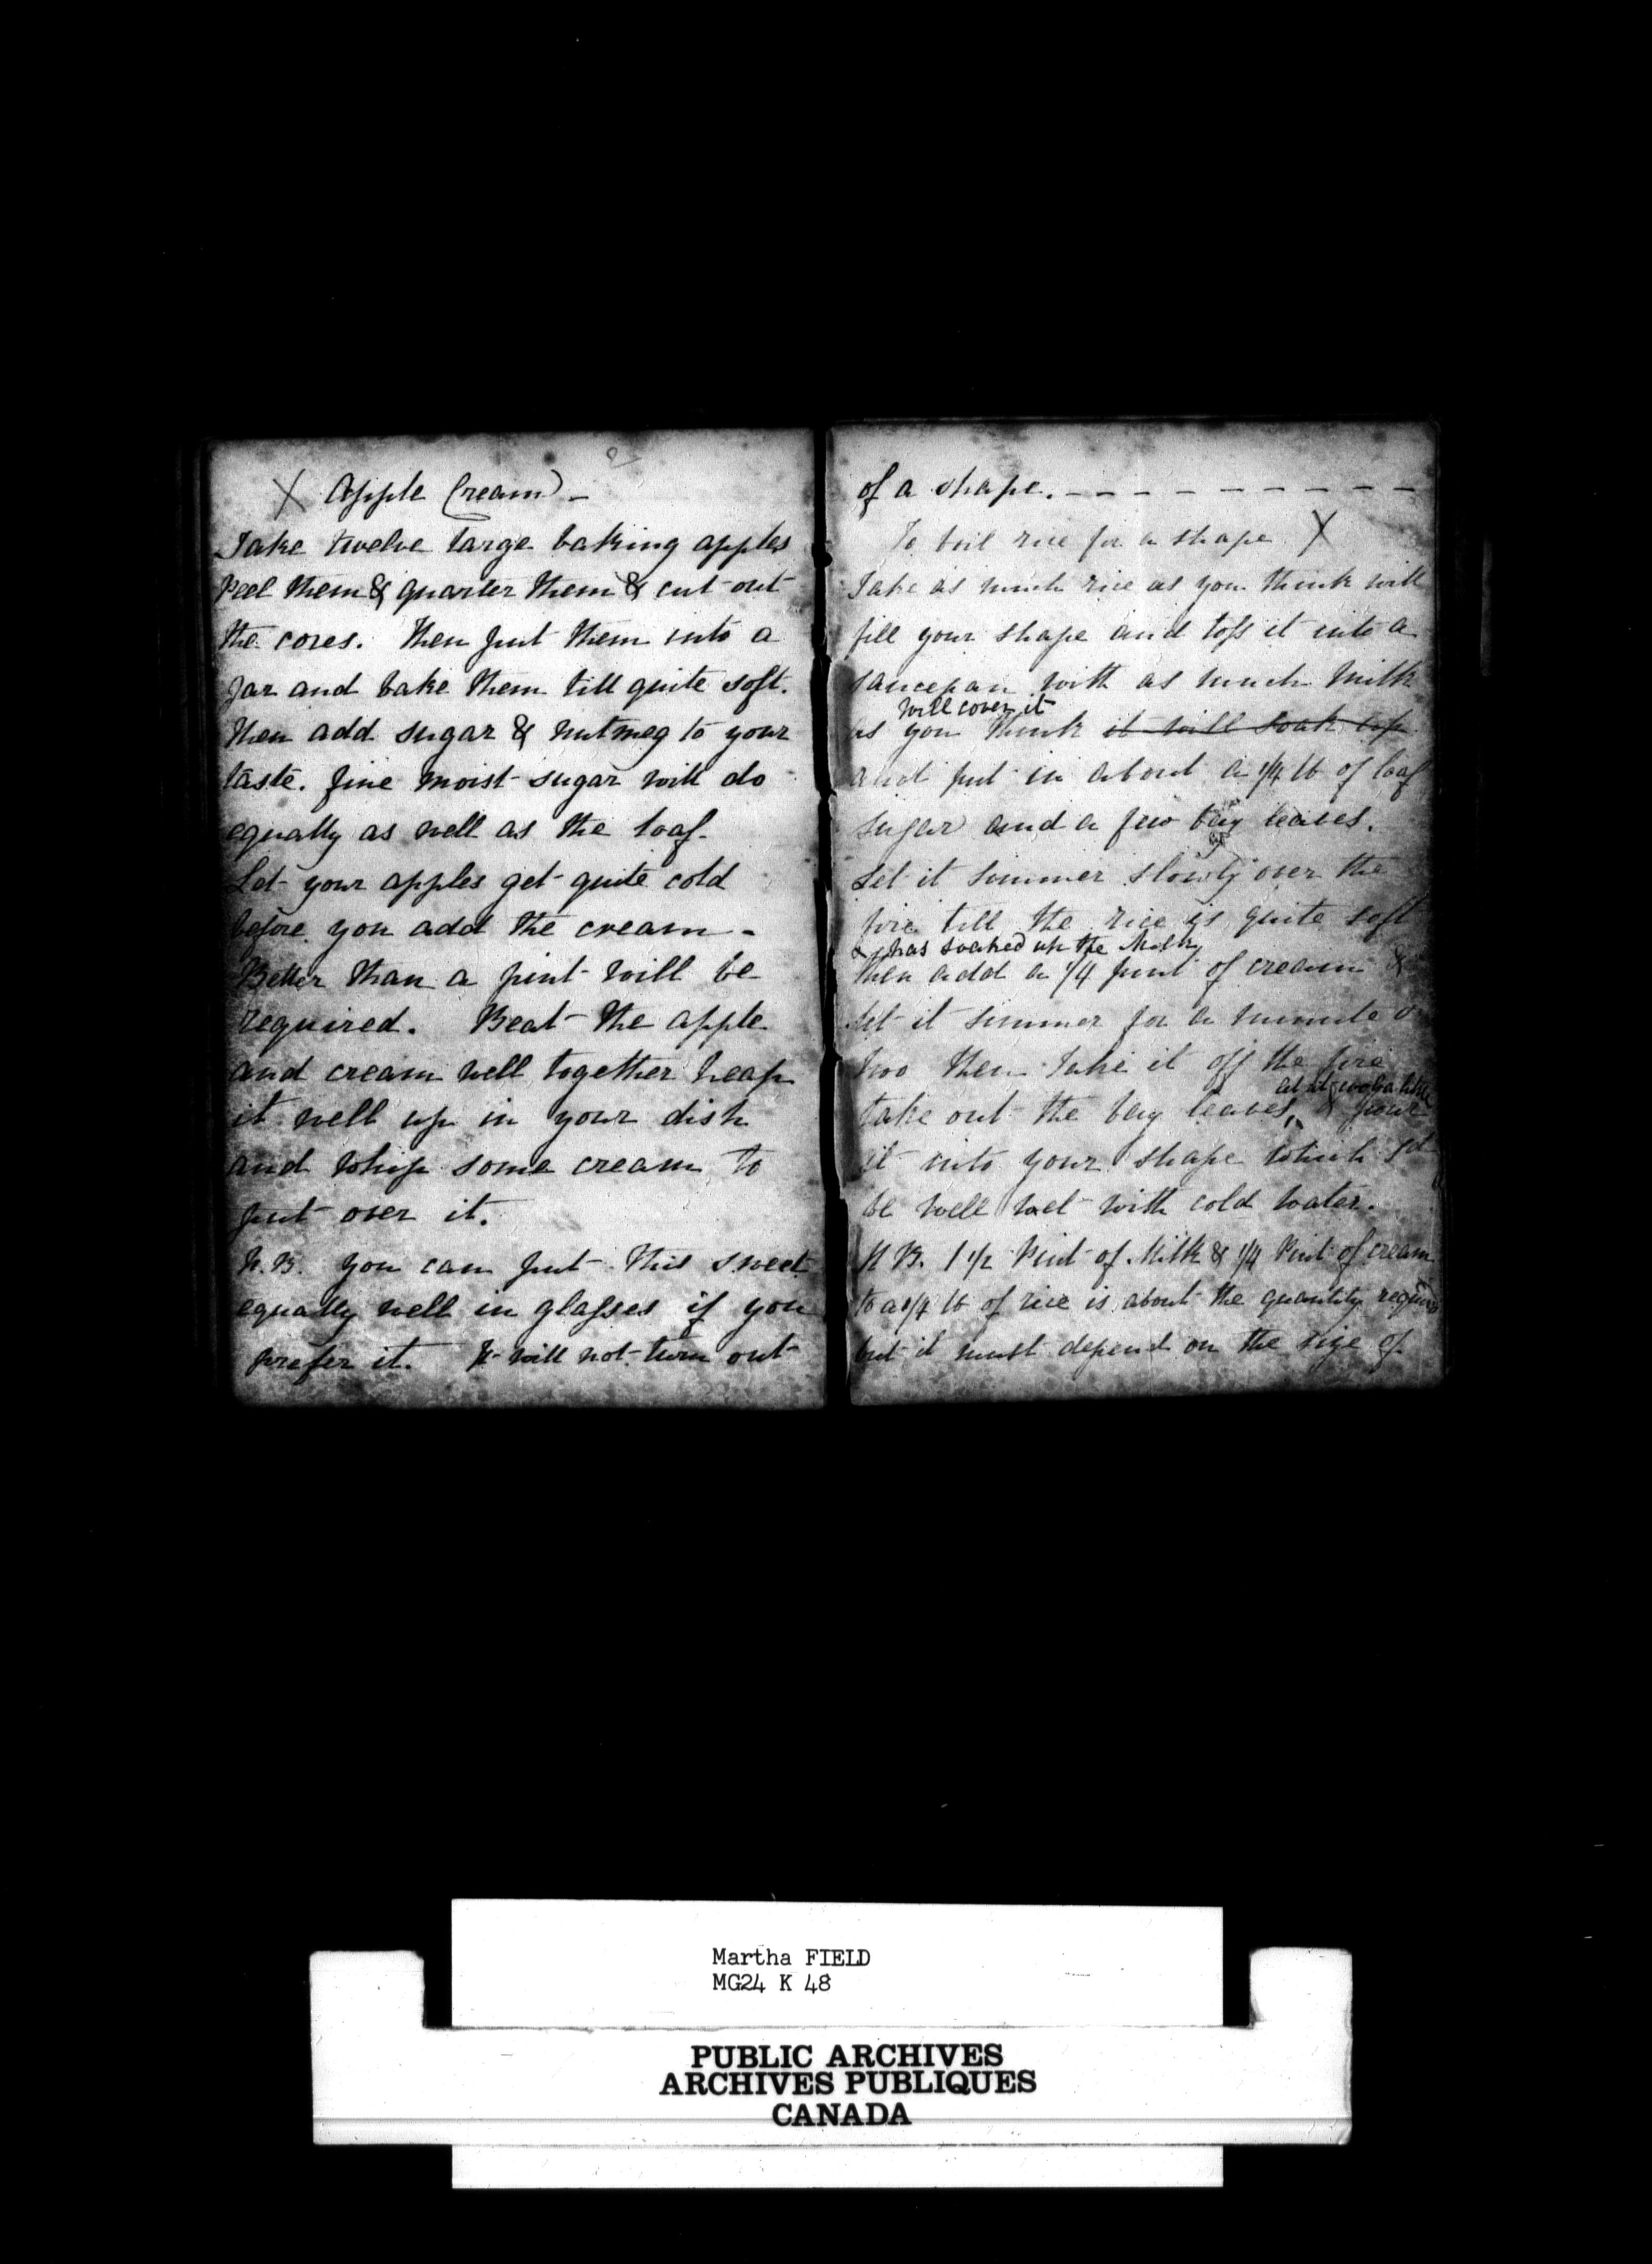 X Apple Cream -
Take twelve large baking apples
peel them & quarter them & cut out
the cores. Then put them into a
jar and bake them till quite soft.
then add sugar & nutmeg to your
taste. fine moist sugar will do
equally as well as the loaf.
Let your apples get quite cold
before you add the cream -
Better than a pint will be
required. Beat the apple
and cream well together heap
it well up in your dish
and whip some cream to
put over it.
N.B. you can put this sweet
equally well in glasses if you
prefer it. It will not turn out
of a shape. - - - - - - - - - -
To boil rice for a shape X
Take as much rice as you think will
fill your shape and toss it into a
saucepan with as much milk
will cover it
as you think it will soak up
and put in about a 1/4 lb of loaf
sugar and a few bay leaves.
Let it simmer slowly over the
fire till the rice is quite soft
& has soaked up the Milk
then add a 1/4 pint of cream &
let it simmer for a minute or
two then take it off the fire
let it cool a little
take out the bay leaves, & pour
it into your shape which sd
be well wet with cold water.
N B. 1 1/2 Pint of Milk & 1/4 Pint of cream
to a 1/4 lb of rice is about the quantity required
but it must depend on the size of
Martha FIELD
MG24 K 48
PUBLIC ARCHIVES
ARCHIVES PUBLIQUES
CANADA